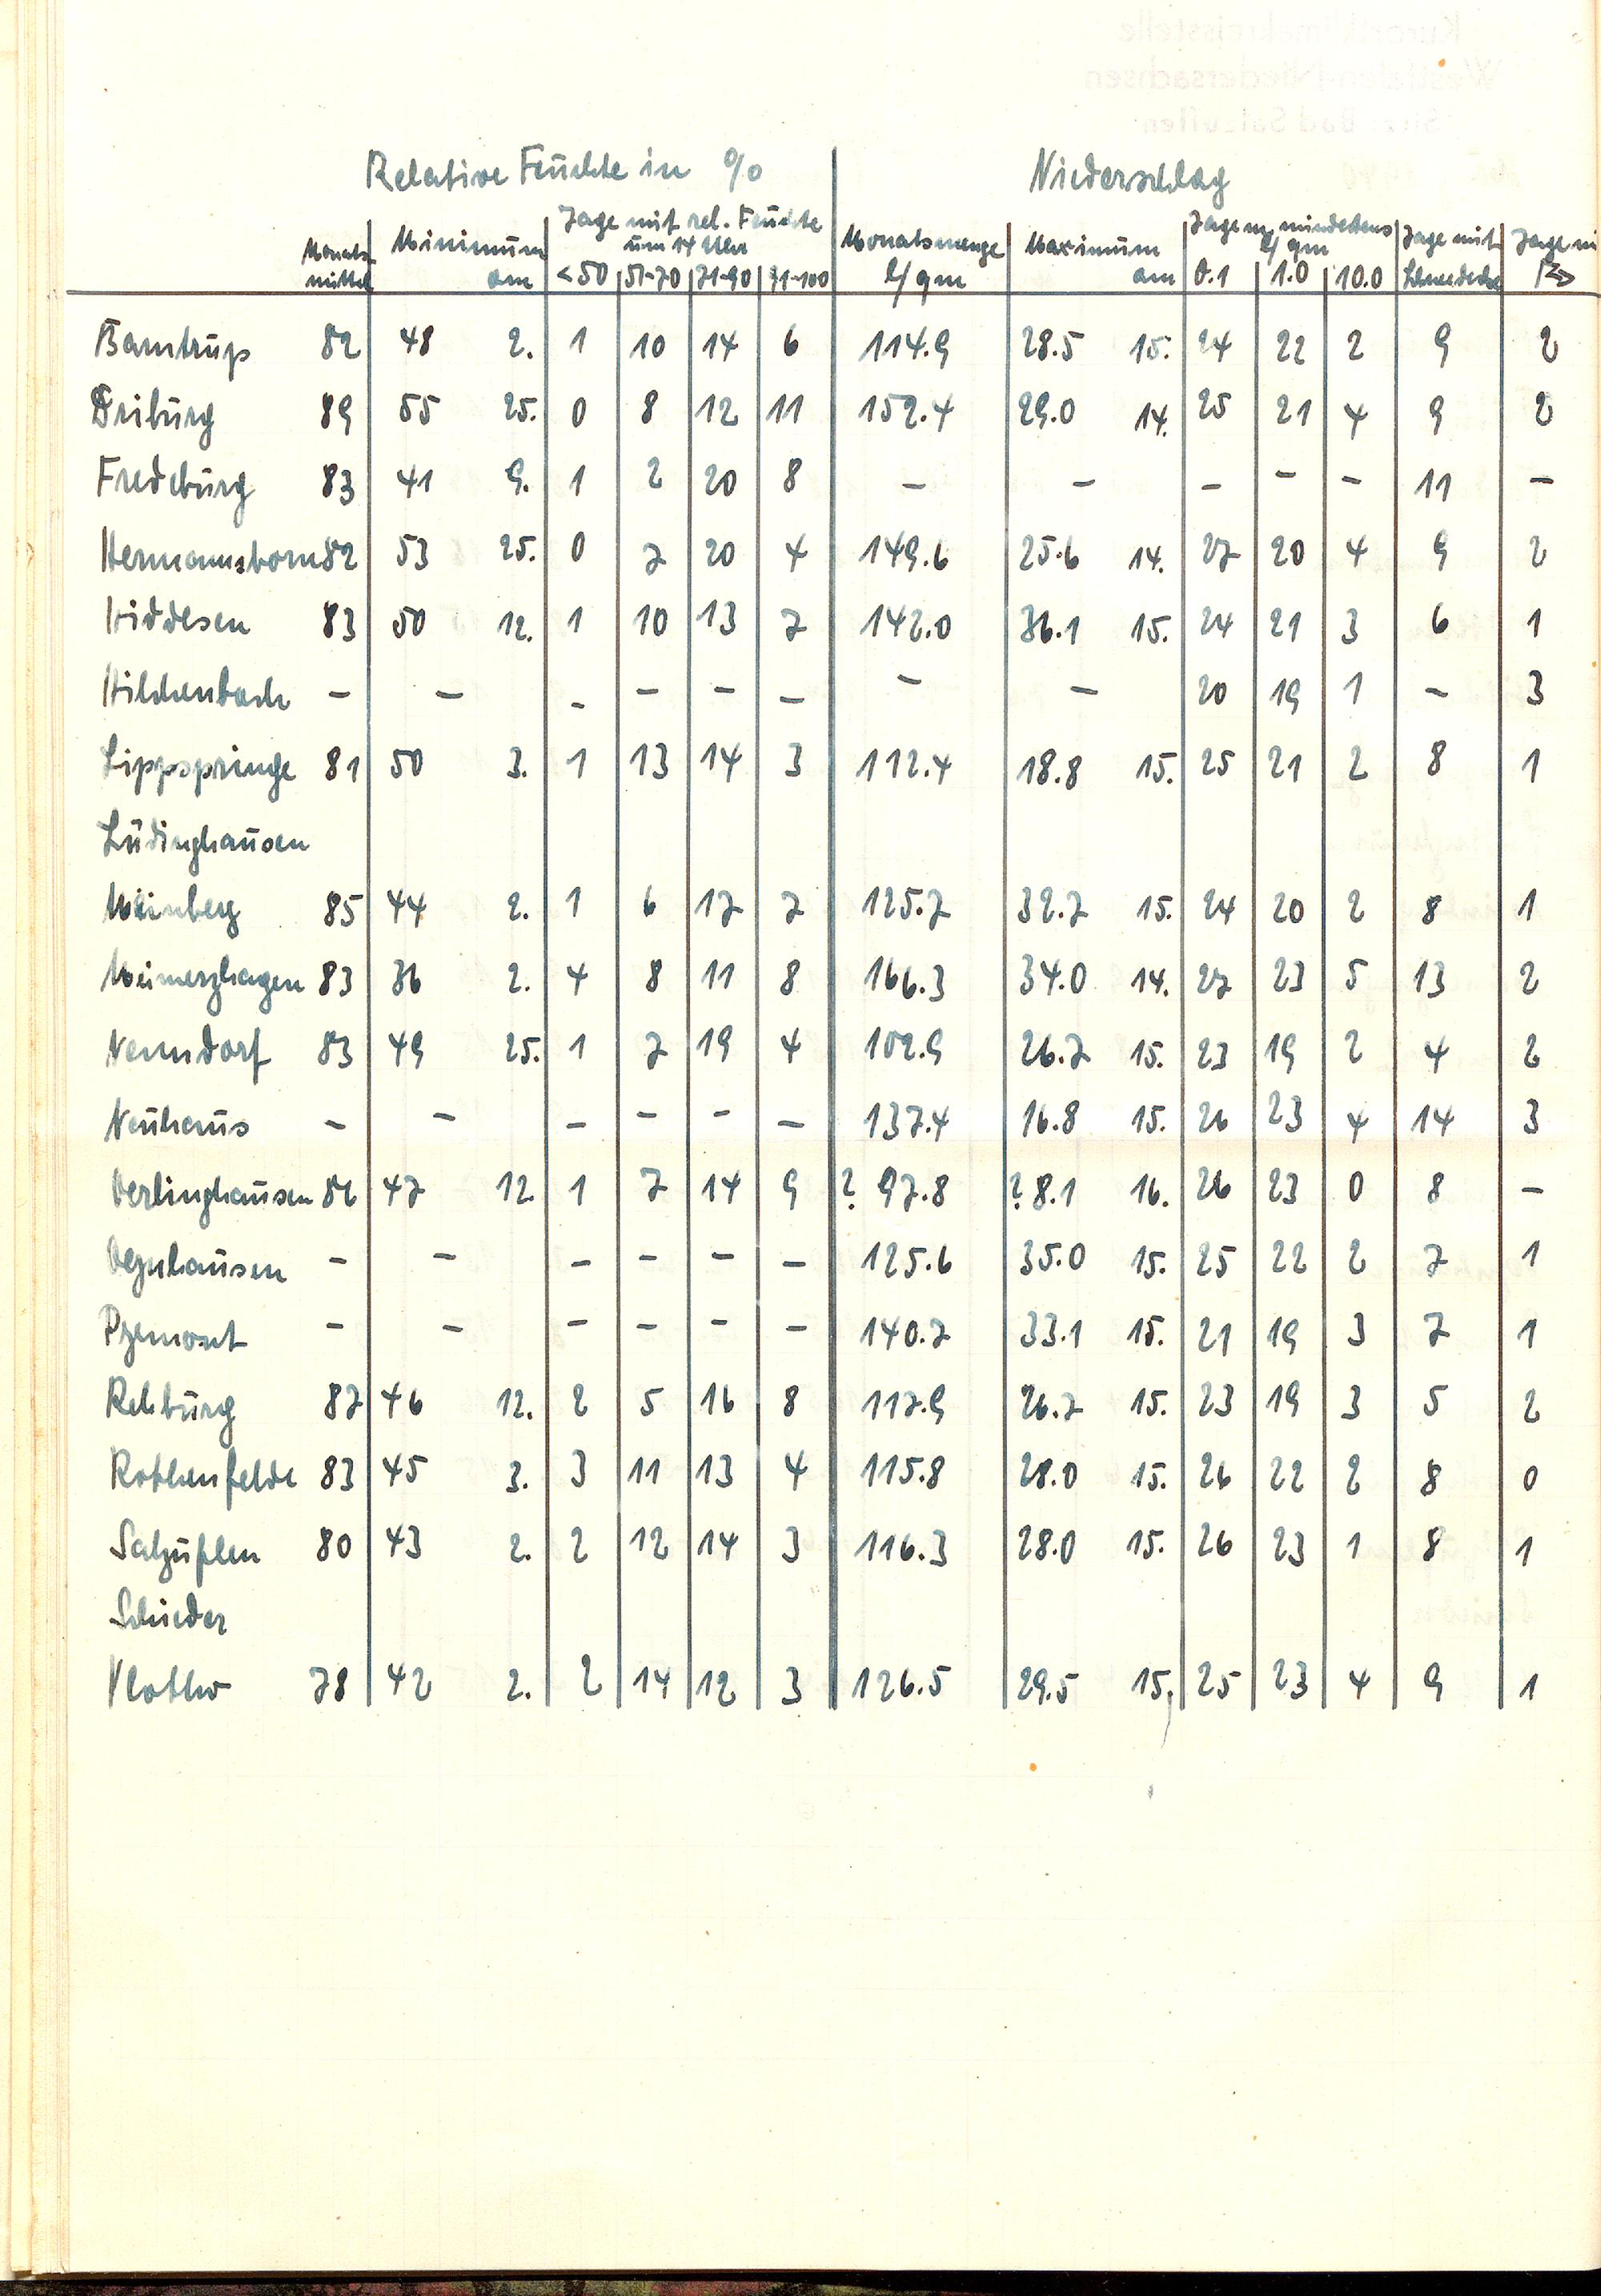 Relative Feuchte in % Niederschlag
Monats- mittel Minimum am Tage mit rel. Feuchte um 14 Uhr <50 51-70 71-90 91-100 Monatsmenge l/qm Maximum am Tage m. mindestens l/qm 0.1 1.0 10.0 Tage mit Schneedecke Tage mi
Barntrup 82 48 2. 1 10 14 6 114.9 28.5 15. 24 22 2 9 2
Driburg 89 55 25. 0 8 12 11 152.4 29.0 14. 25 21 4 9 2
Fredeburg 83 41 9. 1 2 20 8 – – – – – 11 –
Hermannsborn 82 53 25. 0 7 20 4 149.6 25.6 14. 27 20 4 9 2
Hiddesen 83 50 12. 1 10 13 7 142.0 36.1 15. 24 21 3 6 1
Hilchenbach – – – – – – – – 20 19 1 – 3
Lippspringe 81 50 3. 1 13 14 3 112.4 18.8 15. 25 21 2 8 1
Lüdinghausen
Meinberg 85 44 2. 1 6 17 7 125.7 32.7 15. 24 20 2 8 1
Meinerzhagen 83 36 2. 4 8 11 8 166.3 34.0 14. 27 23 5 13 2
Nenndorf 83 49 25. 1 7 19 4 102.9 26.7 15. 23 19 2 4 2
Neuhaus – – – – – – 137.4 16.8 15. 26 23 4 14 3
Oerlinghausen 86 47 12. 1 7 14 9 ? 97.8 ? 8.1 16. 26 23 0 8 –
Oeynhausen – – – – – – 125.6 35.0 15. 25 22 2 7 1
Pyrmont – – – – – – 140.7 33.1 15. 21 19 3 7 1
Rehburg 87 46 12. 2 5 16 8 117.9 26.7 15. 23 19 3 5 2
Rothenfelde 83 45 3. 3 11 13 4 115.8 28.0 15. 26 22 2 8 0
Salzuflen 80 43 2. 2 12 14 3 116.3 28.0 15. 26 23 1 8 1
Schieder
Vlotho 78 42 2. 2 14 12 3 126.5 29.5 15. 25 23 4 9 1